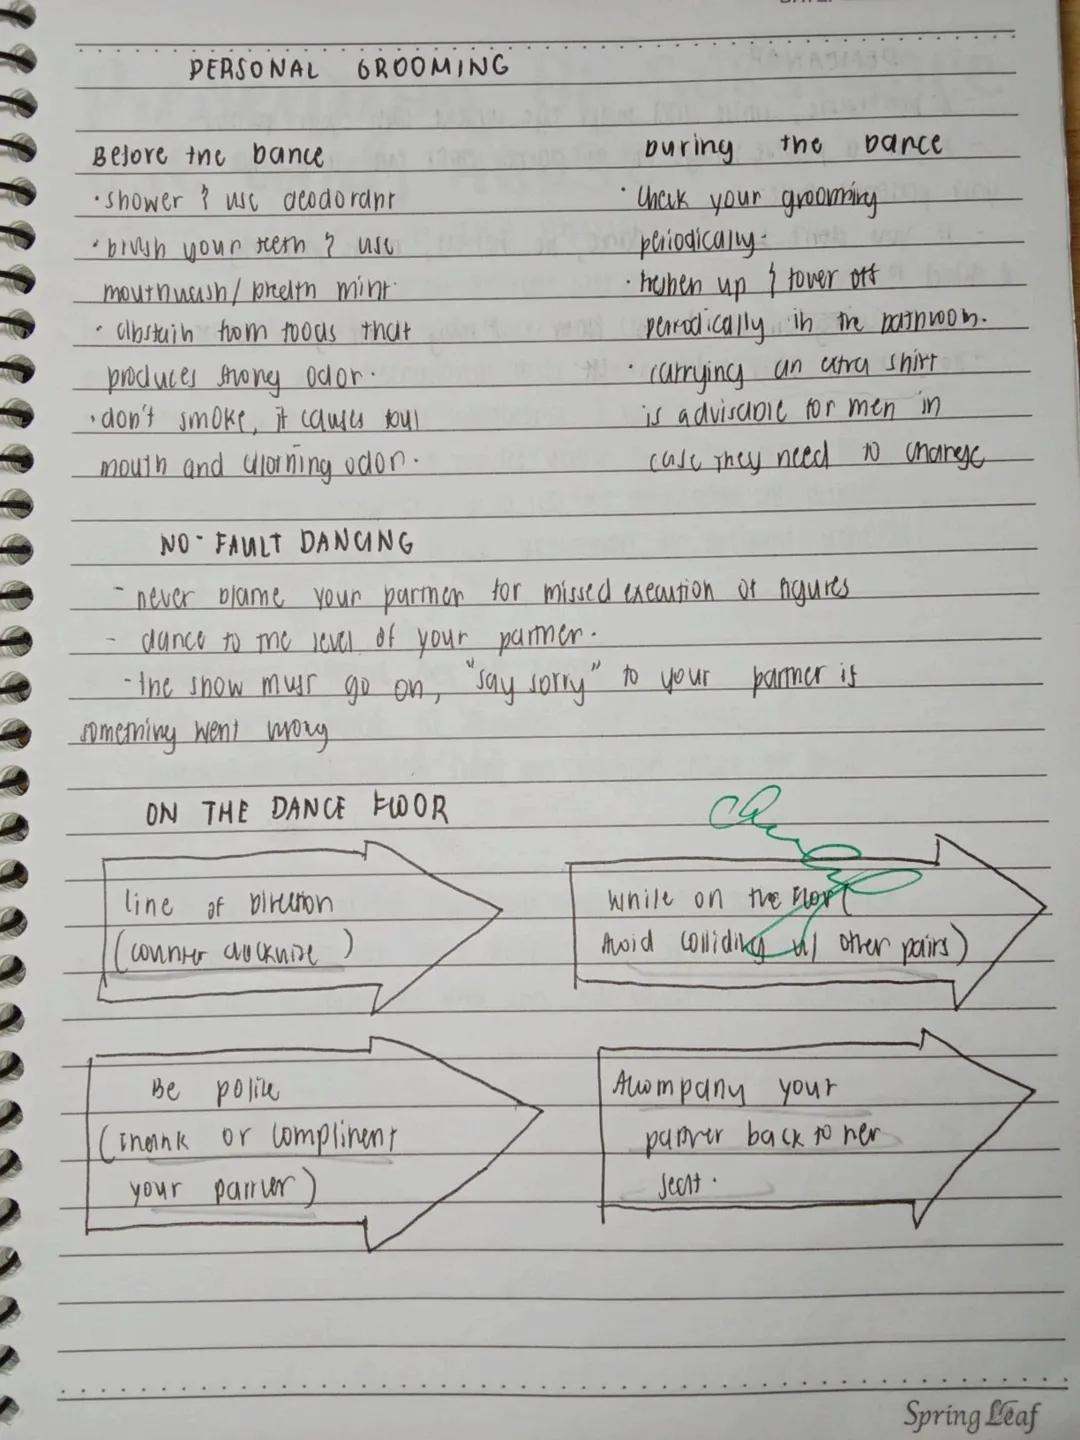 PERSONAL GROOMING
Before the Dance
· shower & use deodorant
· brush your teeth & use
mouthwash/breath mint.
· Abstain from foods that
produces strong odor.
· don't smoke, it causes foul
mouth and clothing odor.
During the Dance
· Check your grooming
periodically.
· freshen up & towel off
periodically in the bathroom.
· carrying an extra shirt
is advisable for men in
case they need to change
NO-FAULT DANCING
- never blame your partner for missed execution of figures
- dance to the level of your partner.
- the show must go on, "say sorry" to your partner if
something went wrong
ON THE DANCE FLOOR
line of Direction
(counter clockwise)
While on the Floor (
Avoid colliding w/ other pairs)
Be polite
(thank or compliment
your partner)
Accompany your
partner back to her
seat.
Spring Leaf